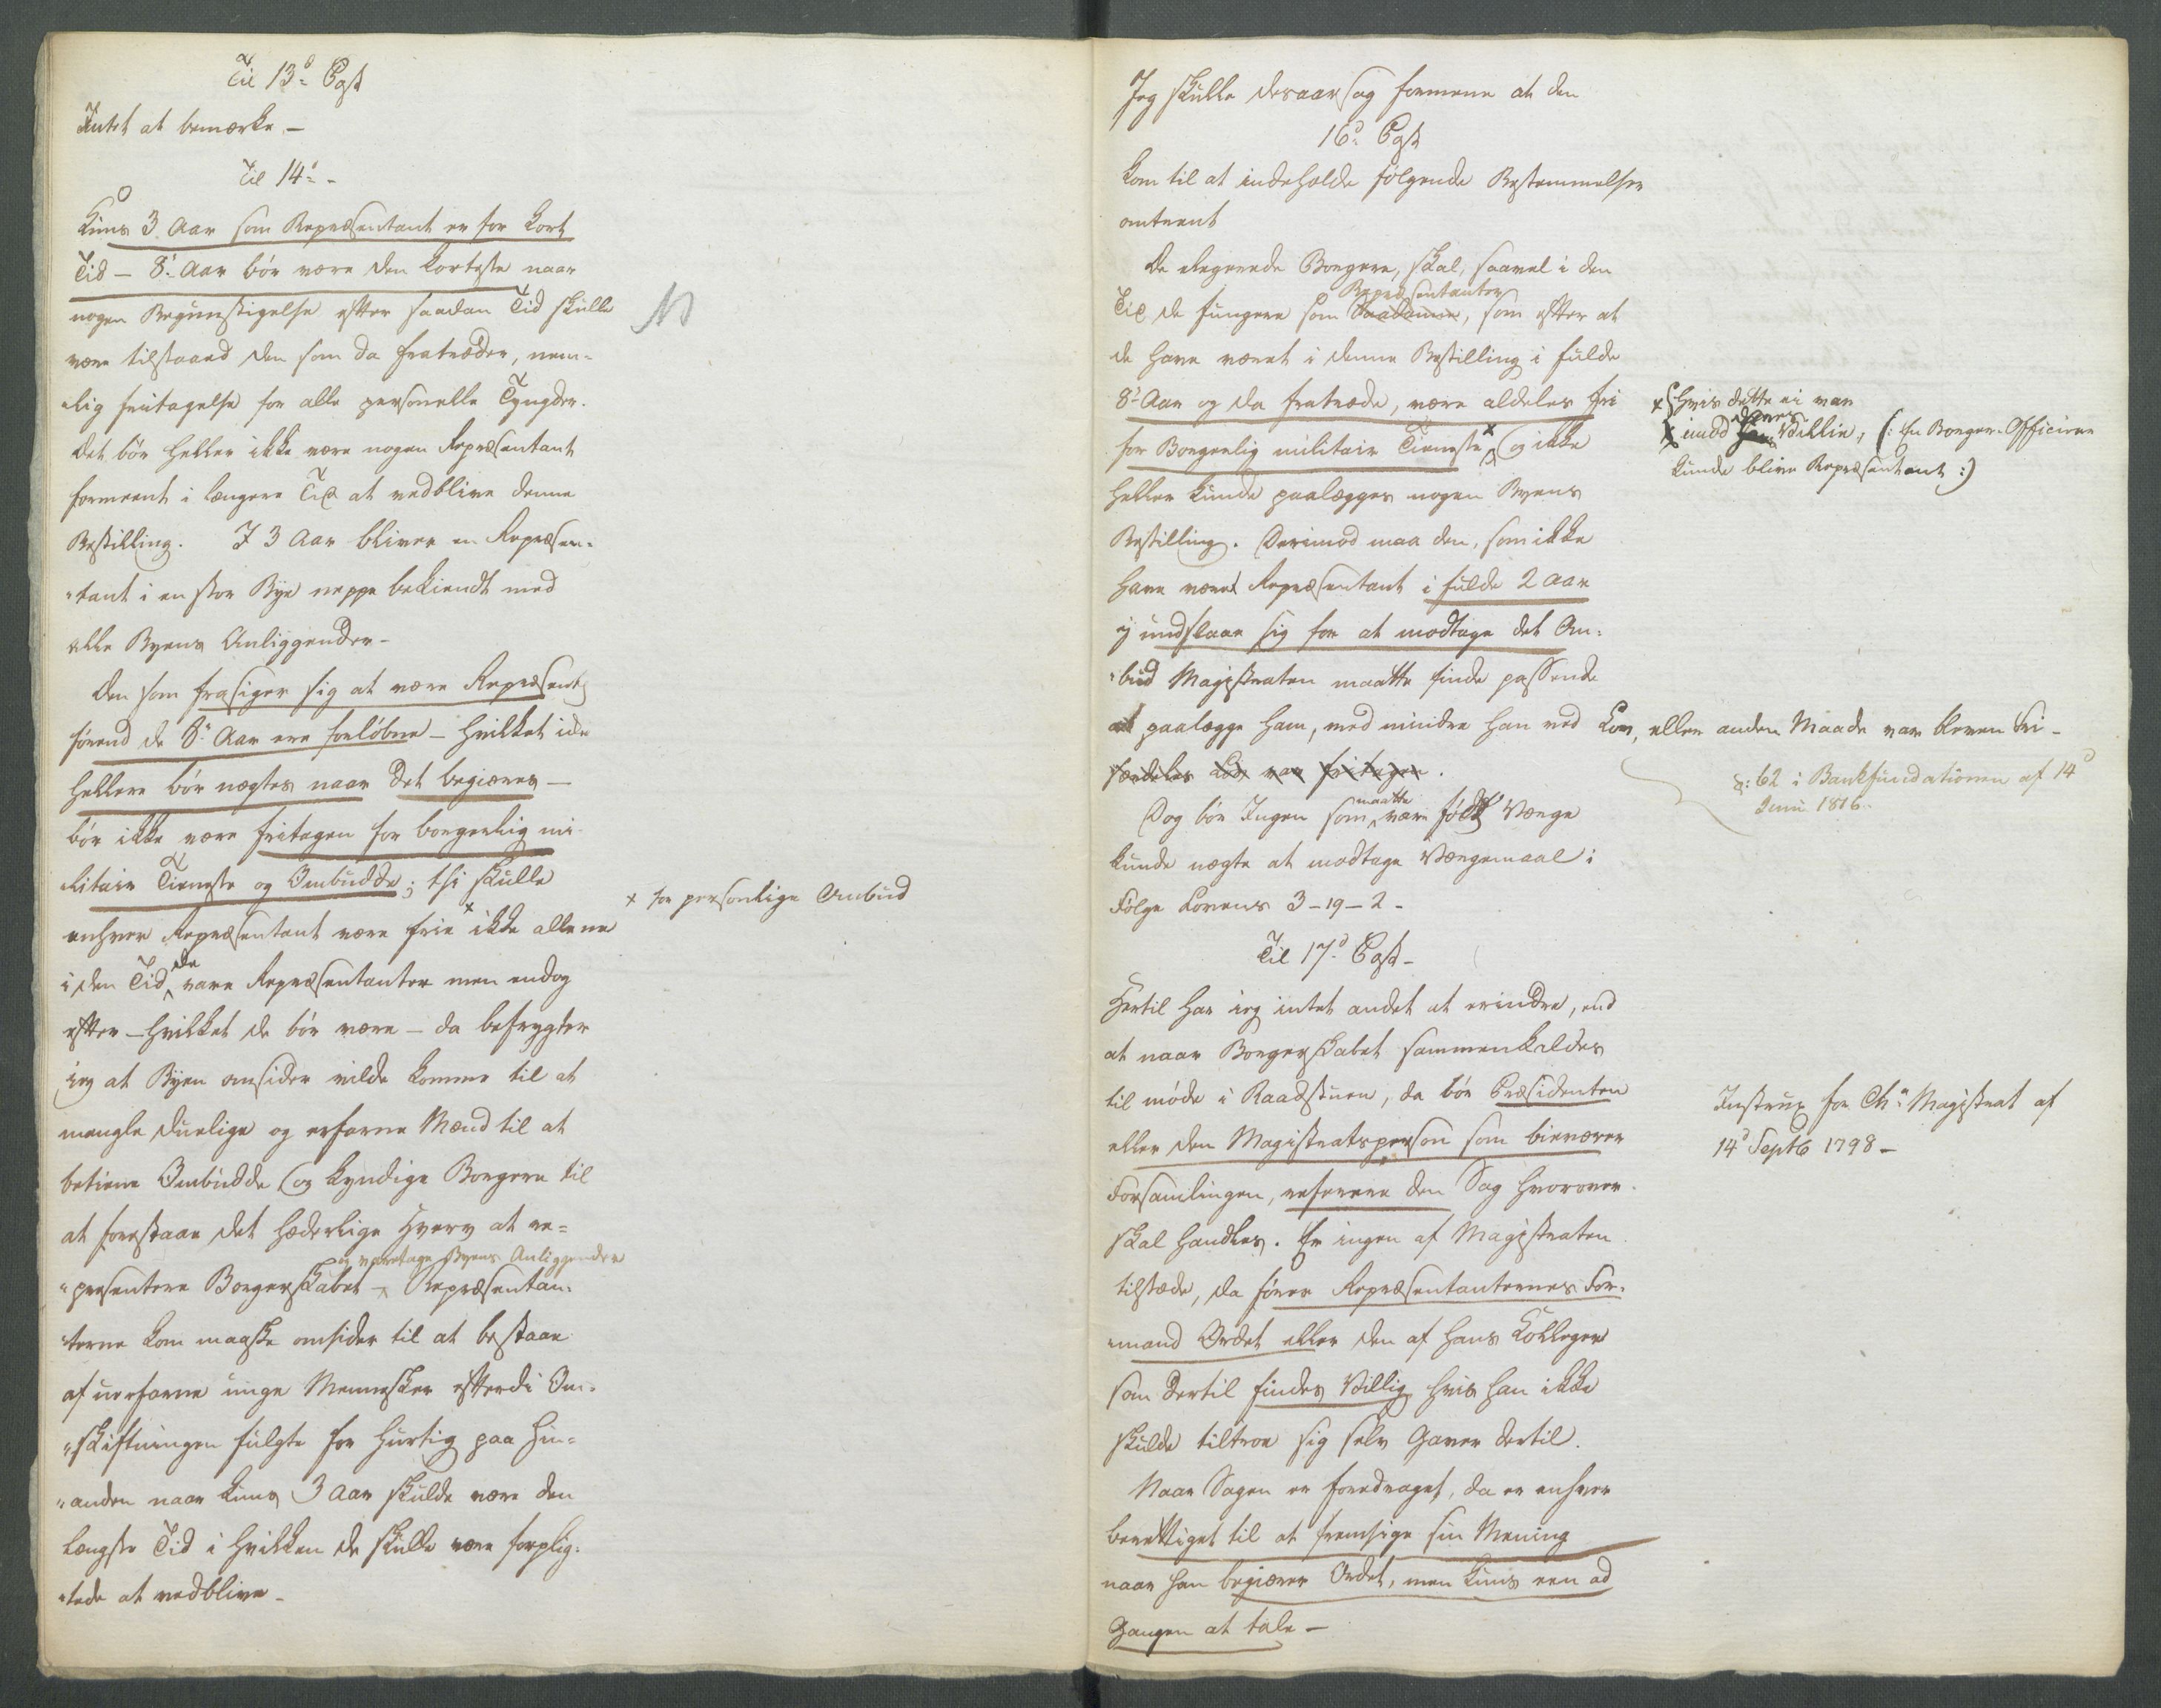 Til 13de Post
Intet at bemærke. -
Til 14de -
Kuns 3 Aar som Repræsentant er for kort
Tid - 8te Aar bør være den korteste naar
nogen Begunstigelse efter saadan Tid skulle
være tilstaaed den som da fratræder, nem-
lig fritagelse for alle personelle Tyngder.
Det bør heller ikke være nogen Repræsentant
formeent i længere Tid at vedblive denne
Bestilling. I 3 Aar bliver en Repræsen-
"tant i en stor Bye neppe bekiendt med
alle Byens Anliggender -
Den som frasiger sig at være Repræsent:
førend de 8te Aar ere forløbne - hvilket ide
hellere bør nægtes naar det begiæres -
bør ikke være fritagen for borgerlig mi-
litair Tieneste og Ombudde; thi skulle
enhver Repræsentant være frie x ikke allene
x for personlige Ombud
i den Tid de vare Repræsentanter men endog
efter - hvilket de bør være - da befrygter
jeg at Byen omsider vilde komme til at
mangle duelige og erfarne Mænd til at
betiene Ombudde og kyndige Borgere til
at forestaae det hæderlige Hverv at re-
og varetage Byens Anliggender
"presentere Borgerskabet - Repræsentan-
"terne kom maaske omsider til at bestaae
af uerfarne unge Mennesker efterdi Om-
"skiftningen fulgte for hurtig paa hin-
"anden naar kuns 3 Aar skulde være den
længste Tid i hvilken de skulle være forplig-
"tede at vedblive -
Jeg skulle desaarsag formene at den
16de Post
kom til at indeholde følgende Bestemmelser
omtrent
De elegerede Borgere, skal, saavel i den
Repræsentanter
Tid de fungere som Saadanne, som efter at
de have været i denne Bestilling i fulde
8te Aar og da fratræde, være aldeles fri
for Borgerlig militair Tieneste x og ikke
x hvis dette ei var
imod deres Villie, (: En Borger-Officier
kunde blive Repræsentant :)
heller kunde paalægges nogen Byens
Bestilling. Derimod maa den, som ikke
have været Repræsentant i fulde 2 Aar
ej undslaae sig for at modtage det Om-
"bud Magistraten maatte finde passende
at paalægge ham, med mindre han ved Lov, eller anden Maade var bleven fri -
særdeles Lov var fritagen.
§: 62 i Bankfundationen af 14d
Juni 1816.
Dog bør Ingen som maatte være født Værge
kunde nægte at modtage Værgemaal i
Følge Lovens 3-19-2 -
Til 17de Post -
Hertil har jeg intet andet at erindre, end
at naar Borgerskabet sammenkaldes
til møde i Raadstuen, da bør Præsidenten
eller den Magistratsperson som bivaaner
Forsamlingen, referere den Sag hvorover
Instrux for Chr: Magistrat af
14d Septb 1798 -
skal handles. Er ingen af Magistraten
tilstæde, da fører Repræsentanternes For-
"mand Ordet eller den af hans Kolleger
som dertil findes Villig hvis han ikke
skulde tiltroe sig selv Gaver dertil.
Naar Sagen er foredraget, da er enhver
berettiget til at fremsige sin Mening
naar han begiærer Ordet, men kuns een ad
Gangen at tale -